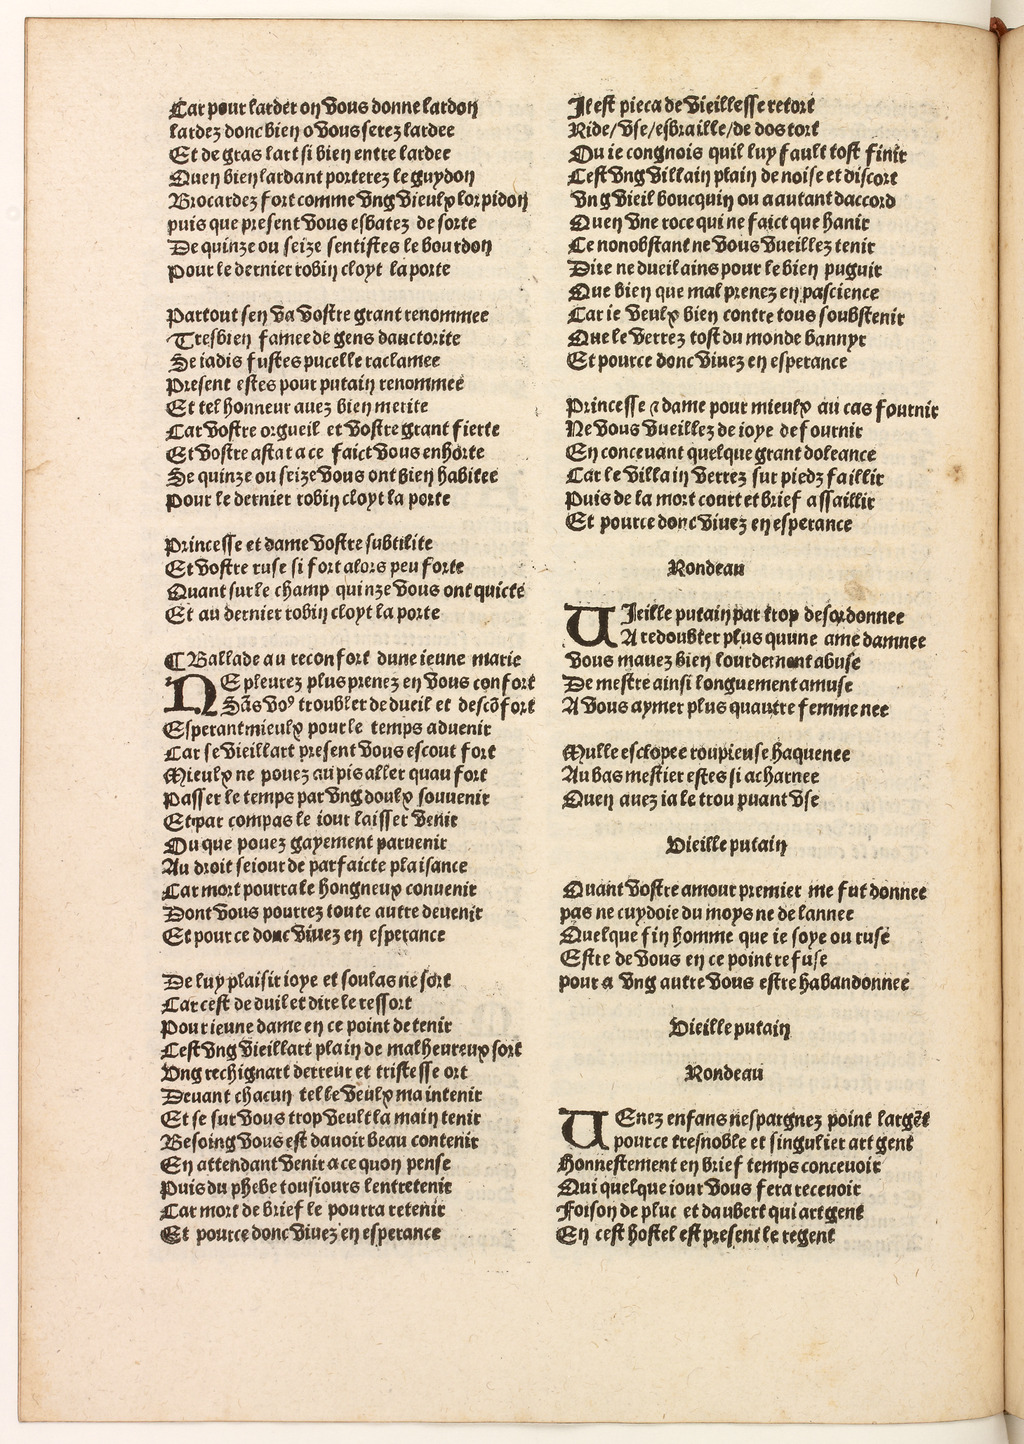 Car pour larder on vous donne lardon
lardez donc bien o vous serez lardee
Et de gras lart si bien entre lardee
Quen bien lardant porterez le guydon
Brocardez fort comme vng vieulx lorpidon
puis que present vous esbatez de sorte
De quinze ou seize sentistes le bourdon
Pour le dernier robin cloyt la porte
Partout sen va vostre grant renommee
Tresbien famee de gens dauctorite
Se iadis fustes pucelle raclamee
Present estes pour putain renommee
Et tel honneur auez bien merite
Car vostre orgueil et vostre grant fierte
Et vostre astat a ce faict vous enhorte
De quinze ou seize vous ont bien habitee
Pour le dernier robin cloyt la porte
Princesse et dame vostre subtilite
Et vostre ruse si fort alors peu forte
Quant sur le champ quinze vous ont quicte
Et au dernier robin cloyt la porte
¶ Ballade au reconfort dune ieune marie
NE pleurez plus prenez en vous confort
Sãs voꝰ troubler de dueil et descõfort
Esperant mieulx pour le temps aduenir
Car se vieillart present vous escout fort
Mieulx ne pouez au pis aller quau fort
Passer le temps par vng doulx souuenir
Et par compas le iour laisser venir
Ou que pouez gayement paruenir
Au droit seiour de parfaicte plaisance
Car mort pourra le hongneux conuenir
Dont vous pourrez toute autre deuenir
Et pour ce donc viuez en esperance
De luy plaisir ioye et soulas ne sort
Car cest de duil et dire le ressort
Pour ieune dame en ce point detenir
Cest vng vieillart plain de malheureux sort
Vng rechignart derreur et tristesse ort
Deuant chacun tel le veulx maintenir
Et se sur vous trop veult la main tenir
Besoing vous est dauoir beau contenir
En attendant venir a ce quon pense
Puis du phebe tousiours lentretenir
Car mort de brief le pourra retenir
Et pource donc viuez en esperance
Il est pieca de vieillesse retort
Ride/vse/esbraille/de dos tort
Ou ie congnois quil luy fault tost finir
Cest vng villain plain de noise et discort
vng vieil boucquin ou a autant daccord
Quen vne roce qui ne faict que hanir
Ce nonobstant ne vous vueillez tenir
Dire ne dueil ains pour le bien puguir
Que bien que mal prenez en pascience
Car ie veulx bien contre tous soubstenir
Que le verrez tost du monde bannyr
Et pource donc viuez en esperance
Princesse ⁊ dame pour mieulx au cas fournir
Ne vous vueillez de ioye defournir
En conceuant quelque grant doleance
Car le villain verrez sur piedz faillir
Puis de la mort court et brief assaillir
Et pource donc viuez en esperance
Rondeau
VIeille putain par trop desordonnee
A redoubter plus quune ame damnee
vous mauez bien lourdement abuse
De mestre ainsi longuement amuse
A vous aymer plus quautre femme nee
Mulle esclopee roupieuse haquenee
Au bas mestier estes si acharnee
Quen auez ia le trou puant vse
Vieille putain
Quant vostre amour premier me fut donnee
pas ne cuydoie du moys ne de lannee
Quelque fin homme que ie soye ou ruse
Estre de vous en ce point refuse
pour a vng autre vous estre habandonnee
Vieille putain
Rondeau
VEnez enfans nespargnez point largẽt
pource tresnoble et singulier art gent
Honnestement en brief temps conceuoir
Qui quelque iour vous fera receuoir
Foison de pluc et daubert qui art gent
En cest hostel est present le regent